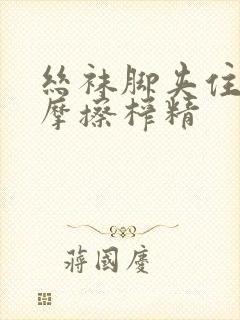 丝袜脚夹住
摩擦榨精
蒋國慶